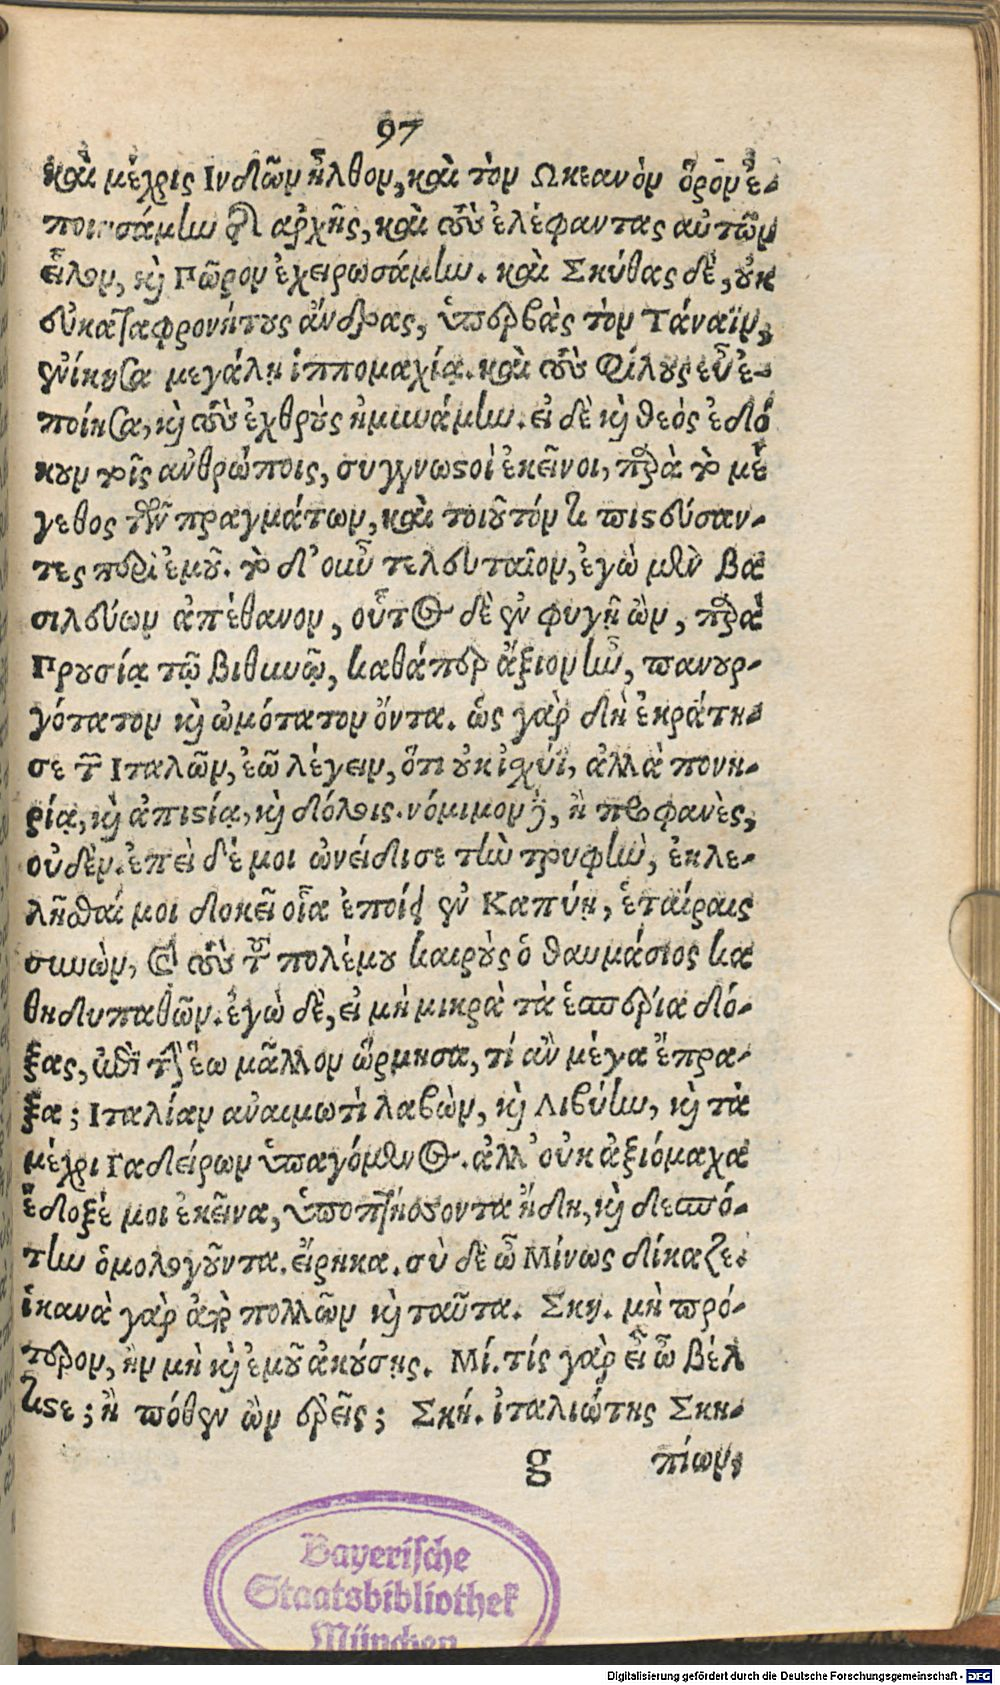 97
καὶ μέχρις Ινδῶν ἦλθον, καὶ τὸν Ωκεανὸν ὅρον ἐ-
ποιησάμην τῆς ἀρχῆς, καὶ τοὺς ἐλέφαντας αὐτῶν
εἷλον, καὶ Πῶρον ἐχειρωσάμην. καὶ Σκύθας δὲ, οὐκ
εὐκαταφρονήτους ἄνδρας, ὑπερβὰς τὸν Τάναϊν,
ἐνίκησα μεγάλῃ ἱππομαχίᾳ. καὶ τοὺς φίλους εὖ ἐ-
ποίησα, καὶ τοὺς ἐχθροὺς ἠμυνάμην. εἰ δὲ καὶ θεὸς ἐδό
κουν τοῖς ἀνθρώποις, συγγνωστοὶ ἐκεῖνοι, παρὰ τὸ μέ
γεθος τῶν πραγμάτων, καὶ τοιοῦτόν τι πιστεύσαν-
τες περὶ ἐμοῦ. τὸ δ' οὖν τελευταῖον, ἐγὼ μὲν βα
σιλεύων ἀπέθανον, οὗτος δὲ ἐν φυγῇ ὢν, παρὰ
Προυσίᾳ τῷ βιθυνῷ, καθάπερ ἄξιον ἦν, πανουρ-
γότατον καὶ ὠμότατον ὄντα. ὡς γὰρ δὴ ἐκράτη-
σε τῶν Ιταλῶν, ἐῶ λέγειν, ὅτι οὐκ ἰσχύϊ, ἀλλὰ πονη-
ρίᾳ, καὶ ἀπιστίᾳ, καὶ δόλοις. νόμιμον δὲ, ἢ προφανὲς,
οὐδέν. ἐπεὶ δέ μοι ὠνείδισε τὴν τρυφὴν, ἐκλε-
λῆσθαί μοι δοκεῖ οἷα ἐποίει ἐν Καπύῃ, ἑταίραις
συνὼν, καὶ τοὺς τοῦ πολέμου καιροὺς ὁ θαυμάσιος κα
θηδυπαθῶν. ἐγὼ δὲ, εἰ μὴ μικρὰ τὰ ἑσπέρια δό-
ξας, ἐπὶ τὴν ἕω μᾶλλον ὥρμησα, τί ἂν μέγα ἔπρα-
ξα; Ιταλίαν ἀναιμωτὶ λαβὼν, καὶ Λιβύην, καὶ τὰ
μέχρι Γαδείρων ὑπαγόμενος. ἀλλ' οὐκ ἀξιόμαχα
ἔδοξέ μοι ἐκεῖνα, ὑποπτήσσοντα ἤδη, καὶ δεσπό-
την ὁμολογοῦντα. εἴρηκα. σὺ δὲ ὦ Μίνως δίκαζε.
ἱκανὰ γὰρ ἀπὸ πολλῶν καὶ ταῦτα. Σκη. μὴ πρό-
τερον, ἢν μὴ καὶ ἐμοῦ ἀκούσῃς. Μί. τίς γὰρ εἶ ὦ βέλ
τιστε; ἢ πόθεν ὢν ἐρεῖς; Σκή. ἰταλιώτης Σκη-
g πίων,
Bayerische
Staatsbibliothek
München
Digitalisierung gefördert durch die Deutsche Forschungsgemeinschaft - DFG